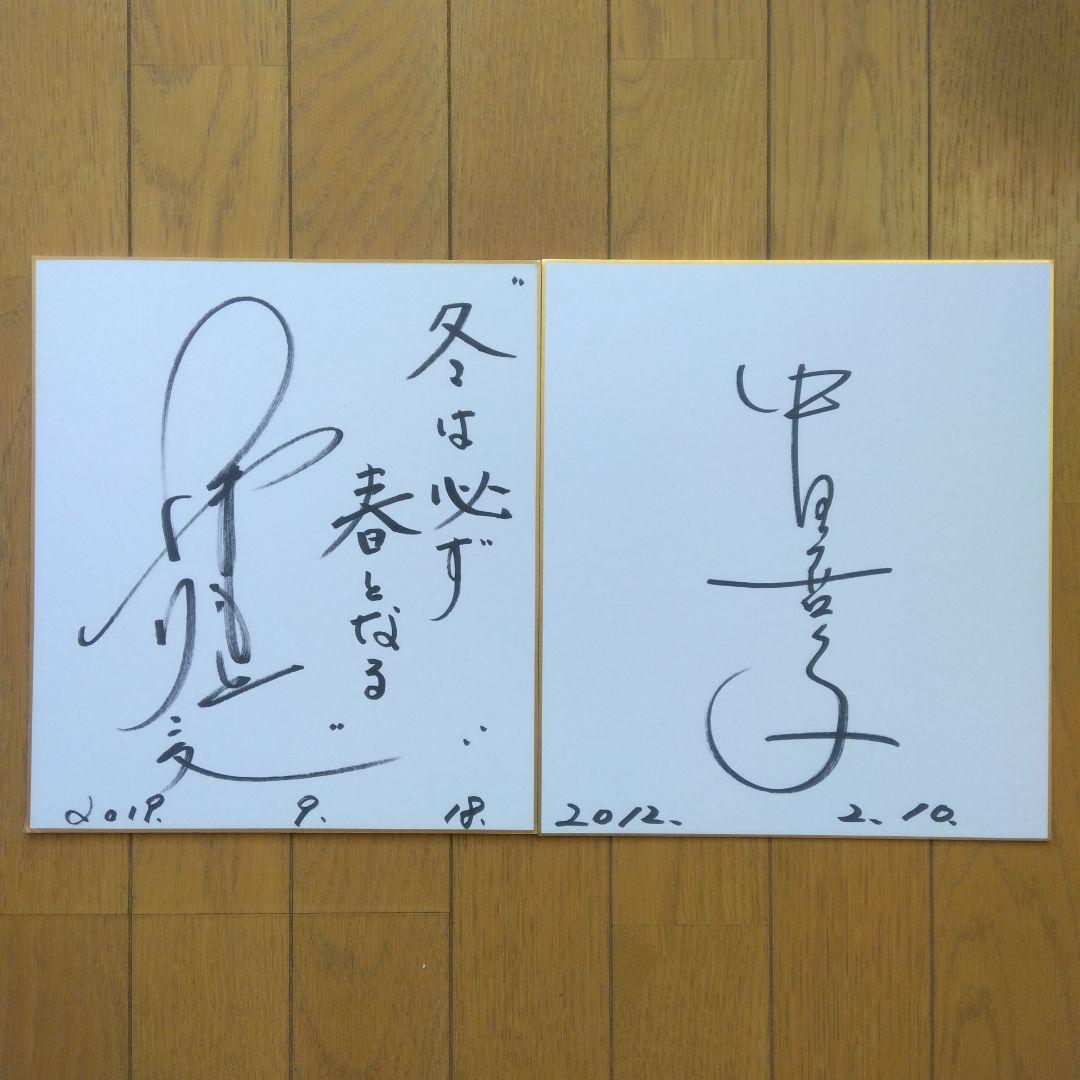 “冬は必ず
春となる”
2019. 9. 18.
中里喜子
2012. 2. 10.